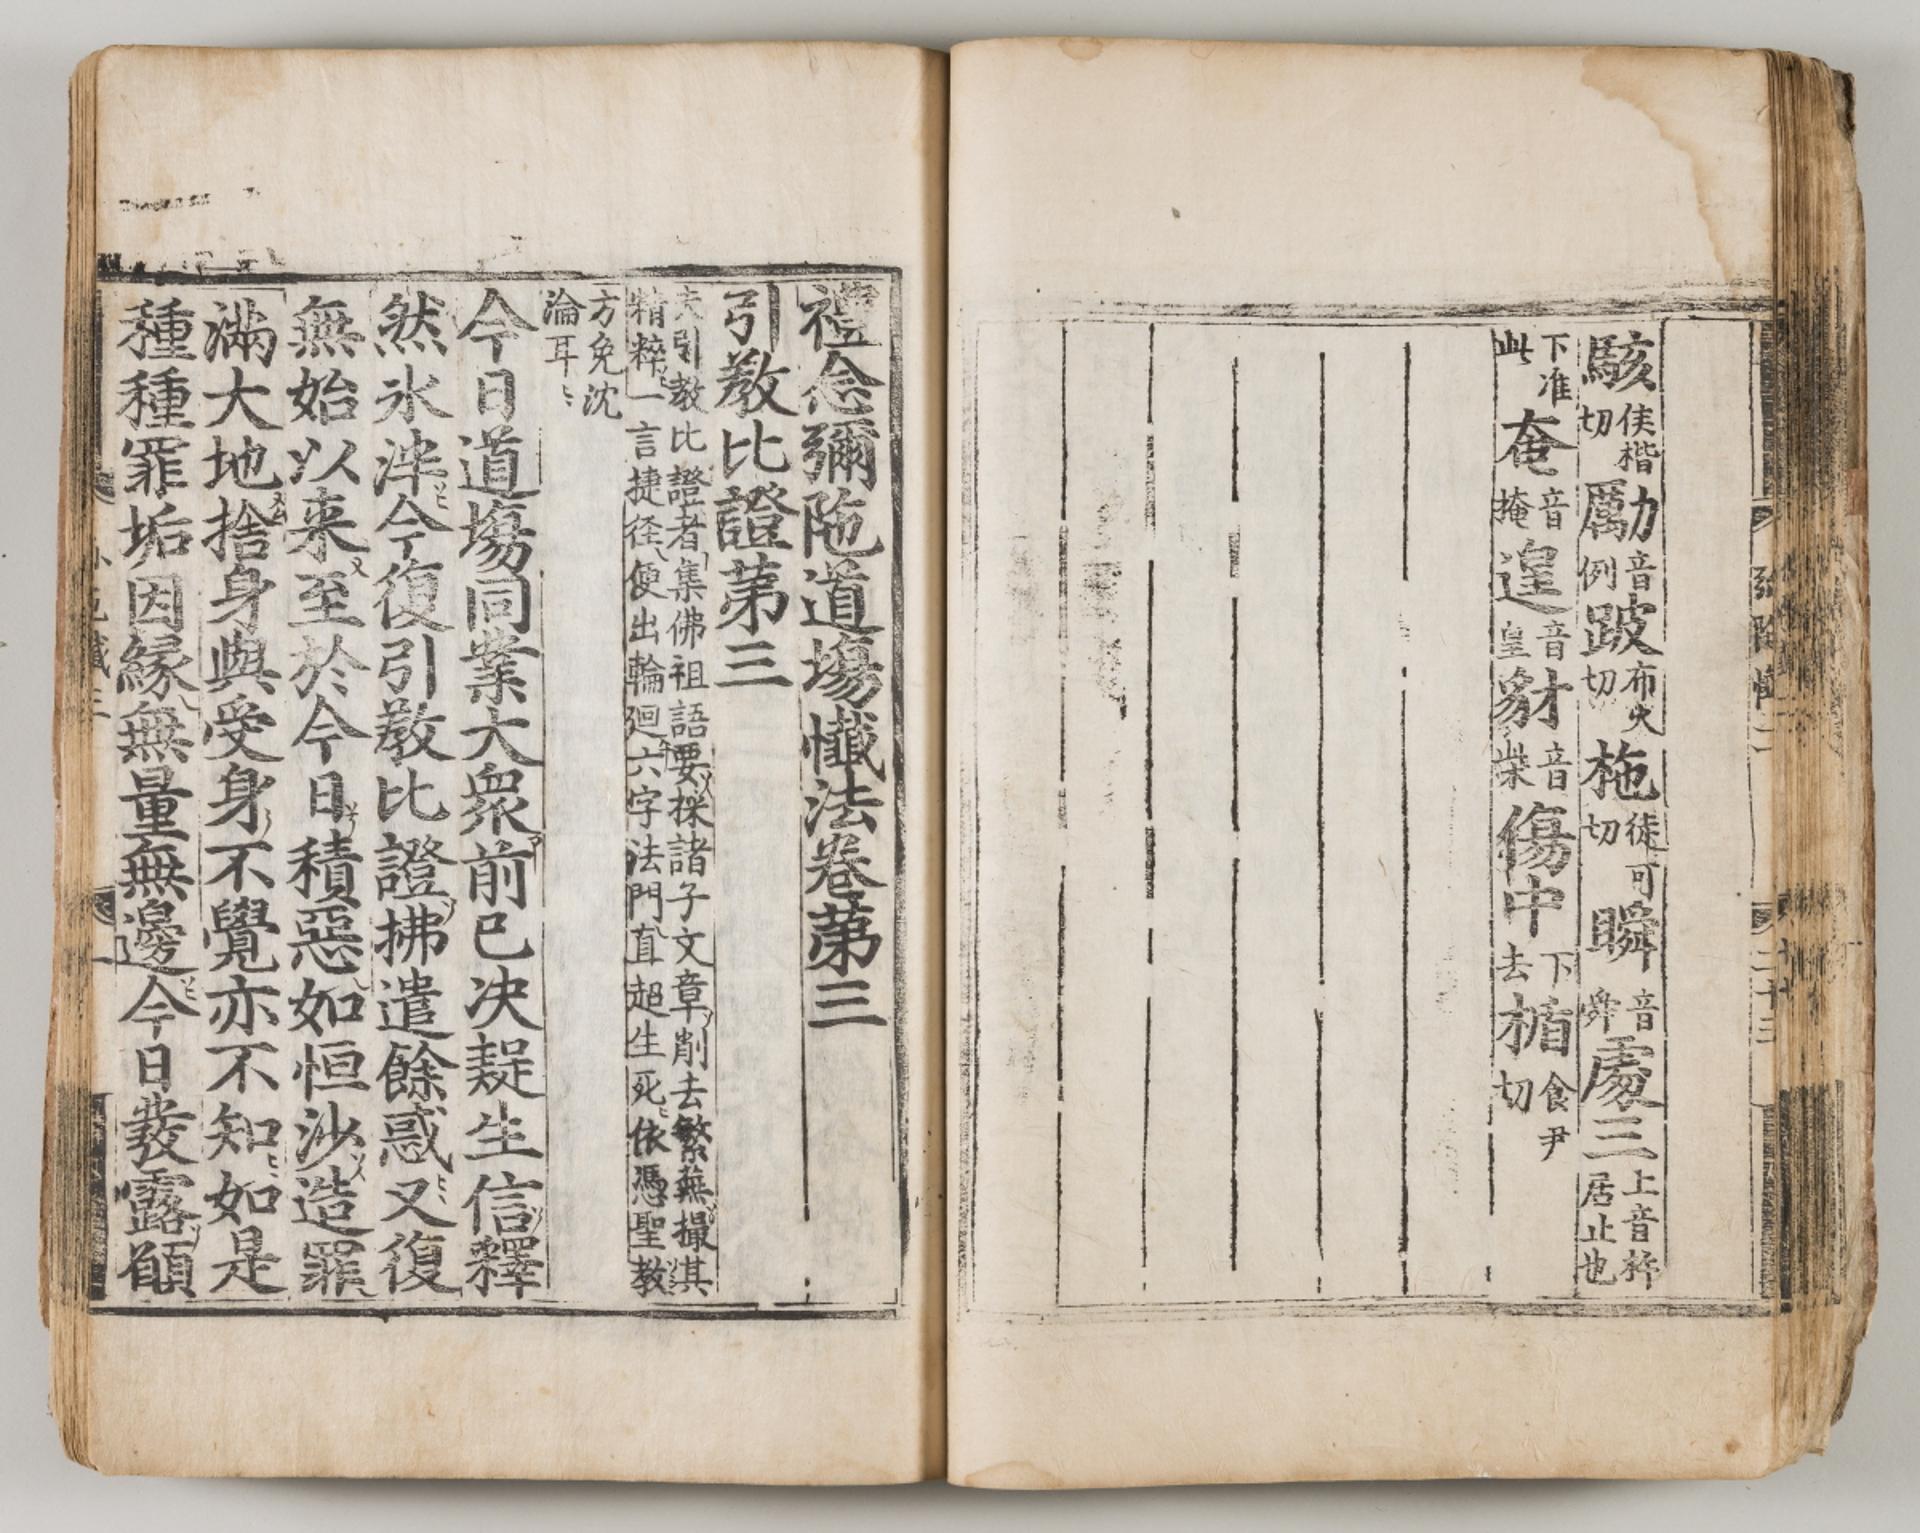 駭侯楷切勵音例跛布火切柂徒可切瞬音舜處三上音杵居止也
下准此奄音掩遑音皇豺音柴傷中下去楯食尹切
禮念彌陁道場懺法卷第三
引教比證第三
夫引教比證者集佛祖語要採諸子文章削去繁蕪撮其
精粹一言捷径便出輪廻六字法門直超生死依憑聖教
方免沈
淪耳
今日道塲同業大衆前已決疑生信釋
然氷泮今復引教比證拂遣餘惑又復
無始以来至於今日積惡如恒沙造罪
滿大地捨身與受身不覺亦不知如是
種種罪垢因縁無量無邊今日發露願